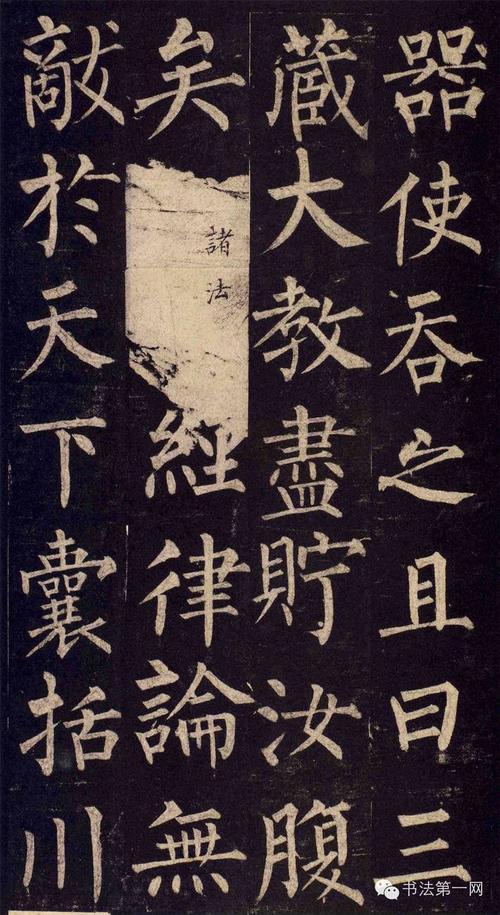 器使吞之且曰三
藏大教盡貯汝腹
矣諸法經律論無
敵於天下囊括川
书法第一网